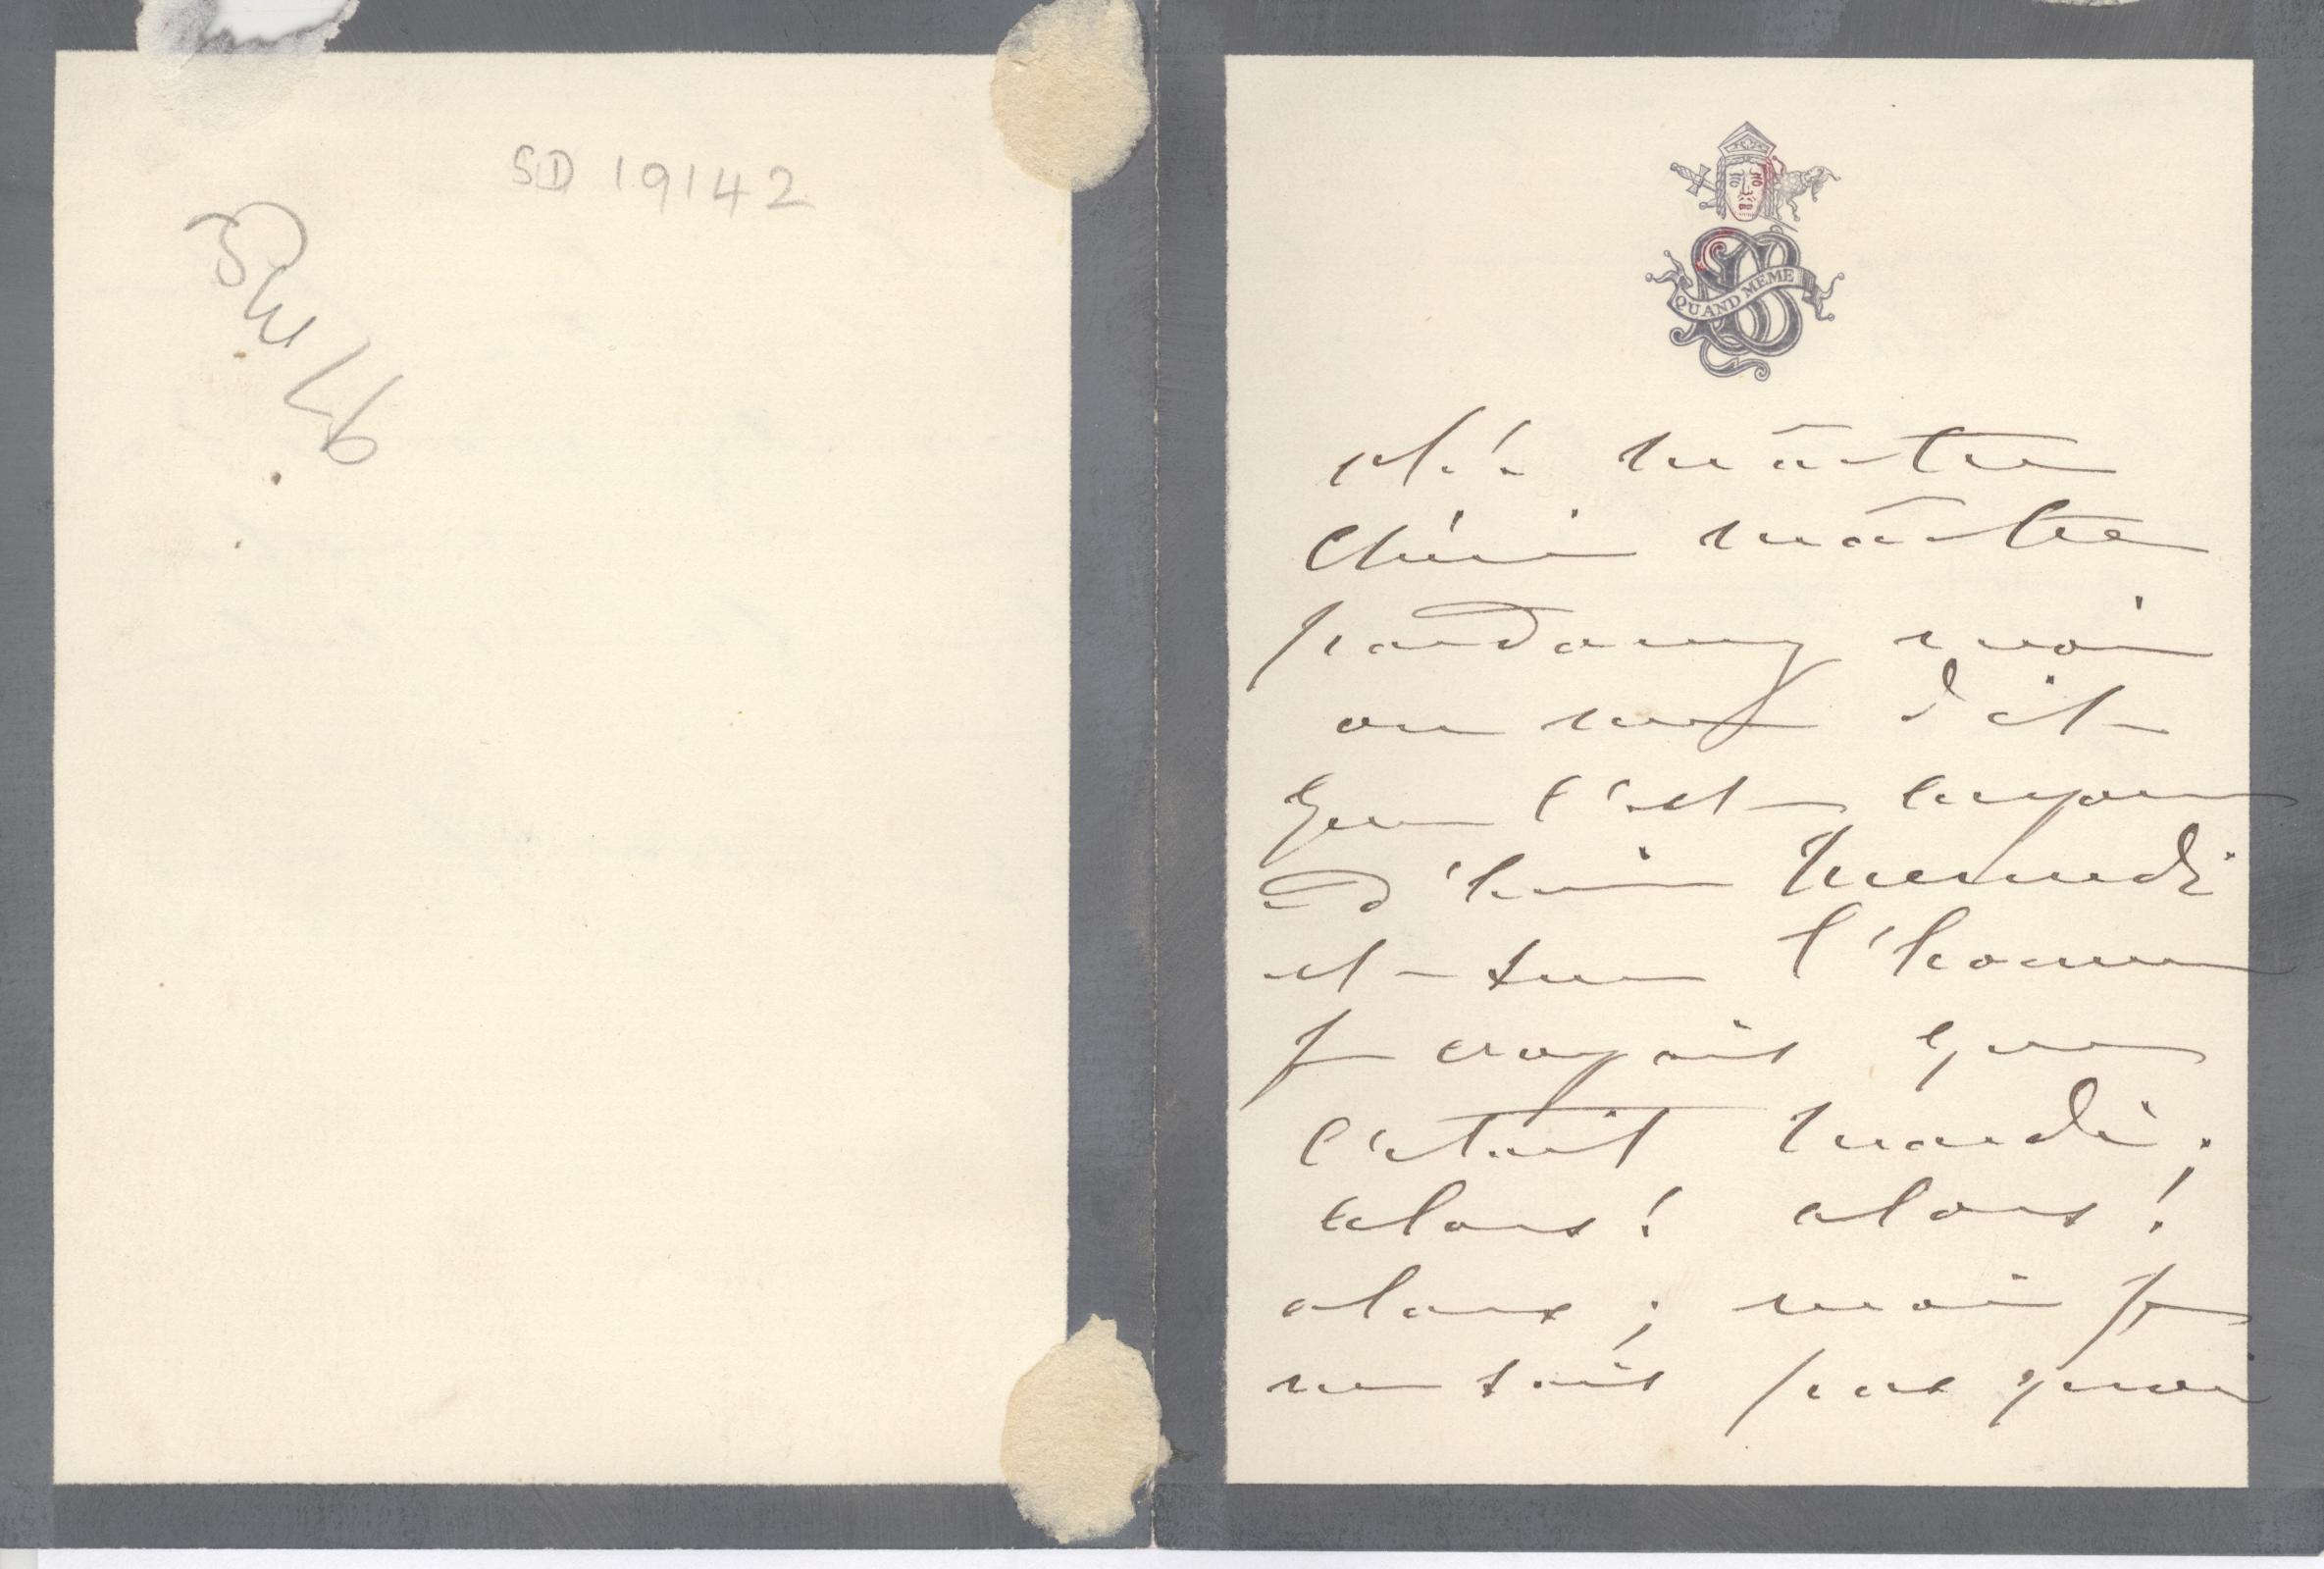 SD 19142
QUAND MEME
maître
Chéri maître
pardonnez moi
on me dit
que c'est aujour
d'hui mercredi
et
Je croyais que
c'était mardi;
alors! alors!
alors; moi je
ne sais pas quoi